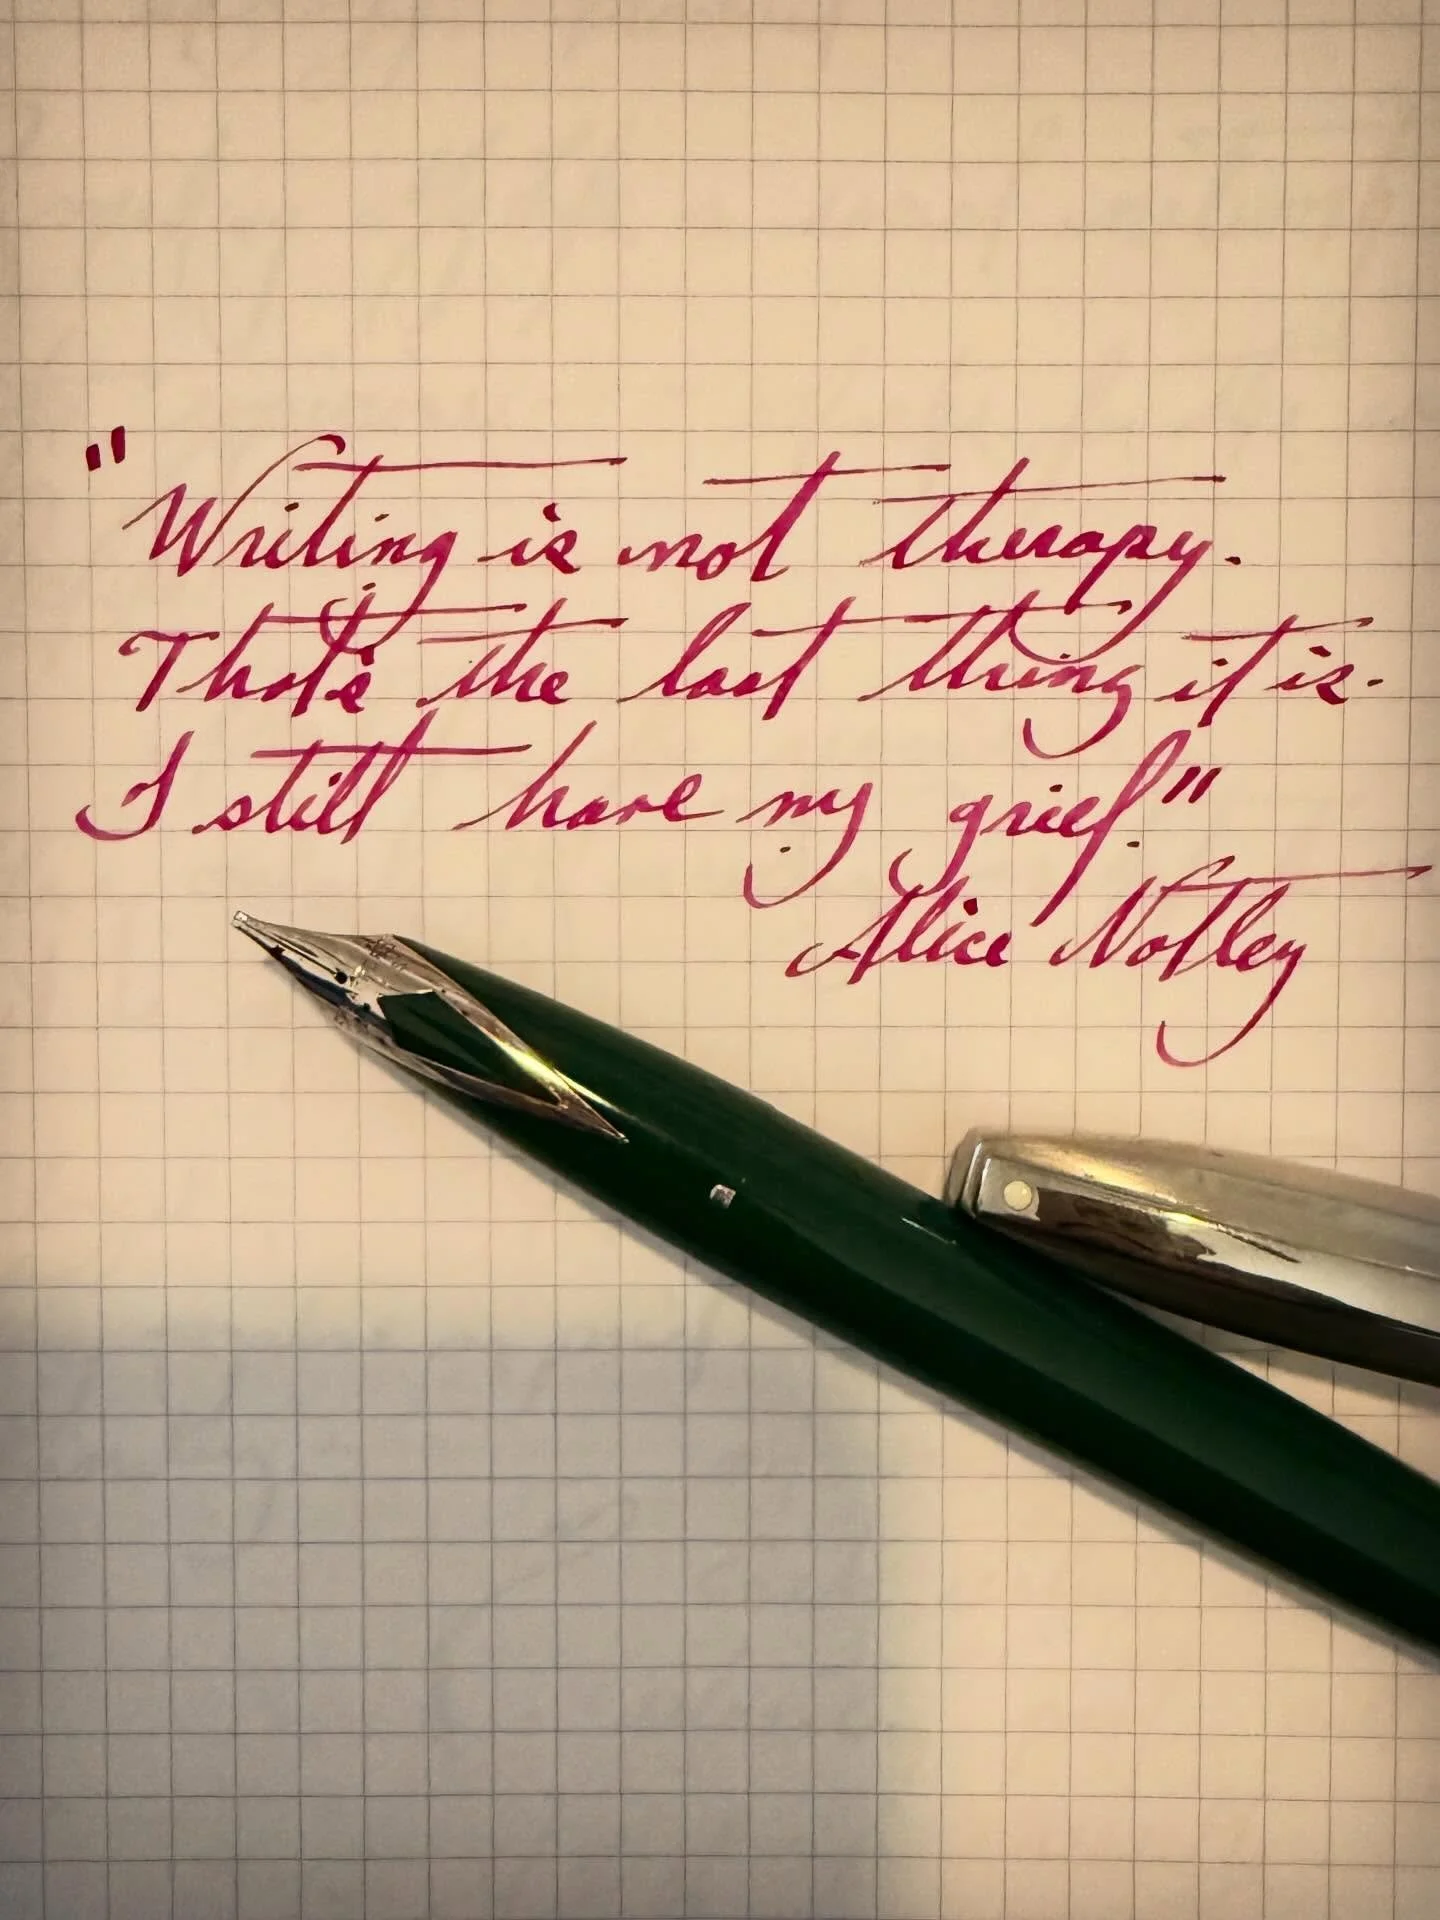 "Writing is not therapy.
That's the last thing it is.
I still have my grief."
Alice Notley